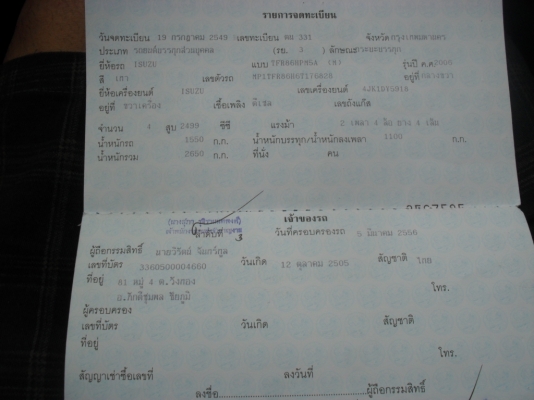 รายการจดทะเบียน
วันจดทะเบียน 19 กรกฎาคม 2549 เลขทะเบียน 331 จังหวัด กรุงเทพมหานคร
ประเภท รถยนต์บรรทุกส่วนบุคคล (รย. 3 ) ลักษณะ
ยี่ห้อรถ ISUZU แบบ รุ่นปี ค.ศ 2006
สี เทา เลขตัวรถ อยู่ที่
ยี่ห้อเครื่องยนต์ ISUZU เลขเครื่องยนต์
อยู่ที่ ขวาเครื่อง เชื้อเพลิง ดีเซล เลขถังแก๊ส
จำนวน 4 สูบ 2499 ซีซี แรงม้า 2 เพลา 4 ล้อ ยาง 4 เส้น
น้ำหนักรถ 1550 ก.ก. น้ำหนักบรรทุก/น้ำหนักลงเพลา 1100 ก.ก.
น้ำหนักรวม 2650 ก.ก. ที่นั่ง คน
เจ้าของรถ
ลำดับที่ 3 วันที่ครอบครองรถ 5 มีนาคม 2556
ผู้ถือกรรมสิทธิ์
เลขที่บัตร 3360500004660 วันเกิด 12 ตุลาคม 2505 สัญชาติ ไทย
ที่อยู่ 81 หมู่ 4 ต.วังทอง โทร.
อ.ภักดีชุมพล ชัยภูมิ
ผู้ครอบครอง
เลขที่บัตร วันเกิด สัญชาติ
ที่อยู่ โทร.
สัญญาเช่าซื้อเลขที่ ลงวันที่
ลงชื่อ...........................ผู้ถือกรรมสิทธิ์